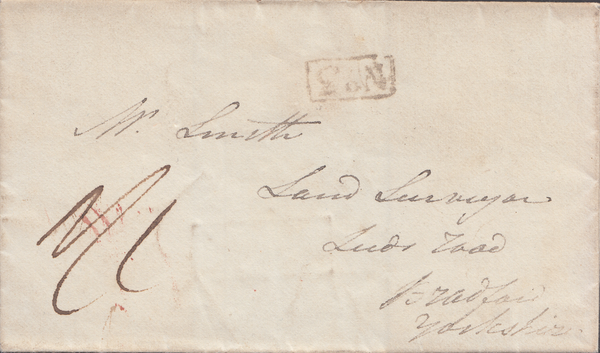 No 3
Mr. Smith
Land Surveyor
Leeds Road
Bradford
Yorkshire